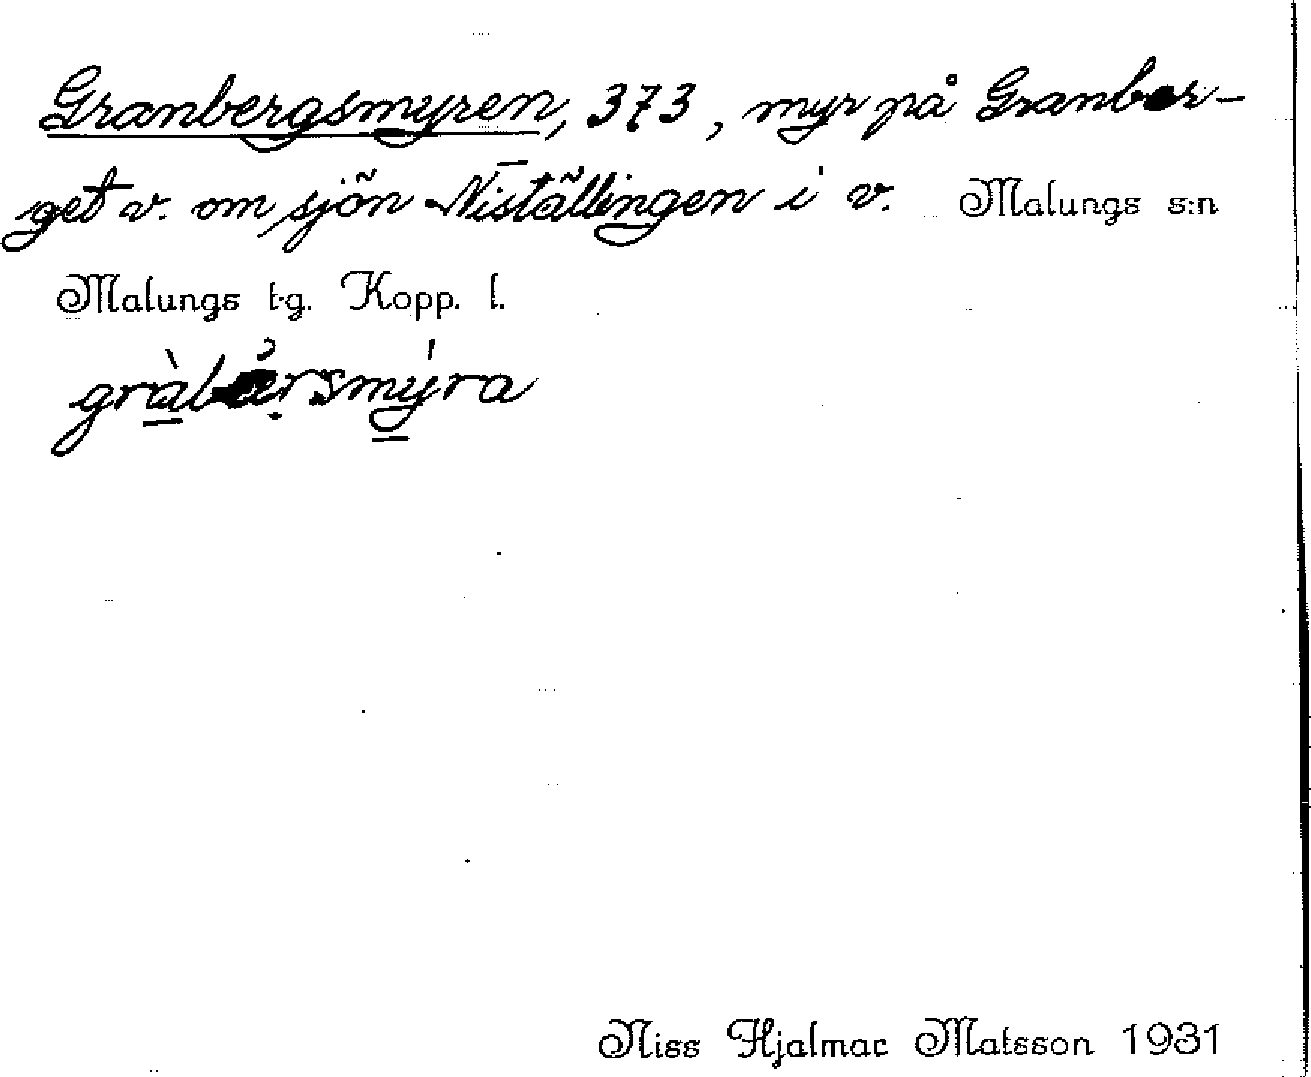 Granbergsmyren, 373, myr på Granber-
get v. om sjön Niställingen i v. Malungs s:n
Malungs tg. Kopp. l.
gràbårsmýra
Niss Hjalmar Matsson 1931